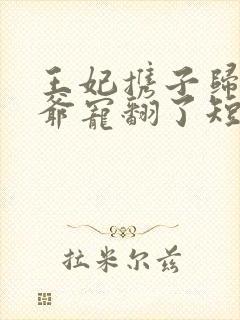 王妃携子归
爷宠翻了短
拉米尔兹